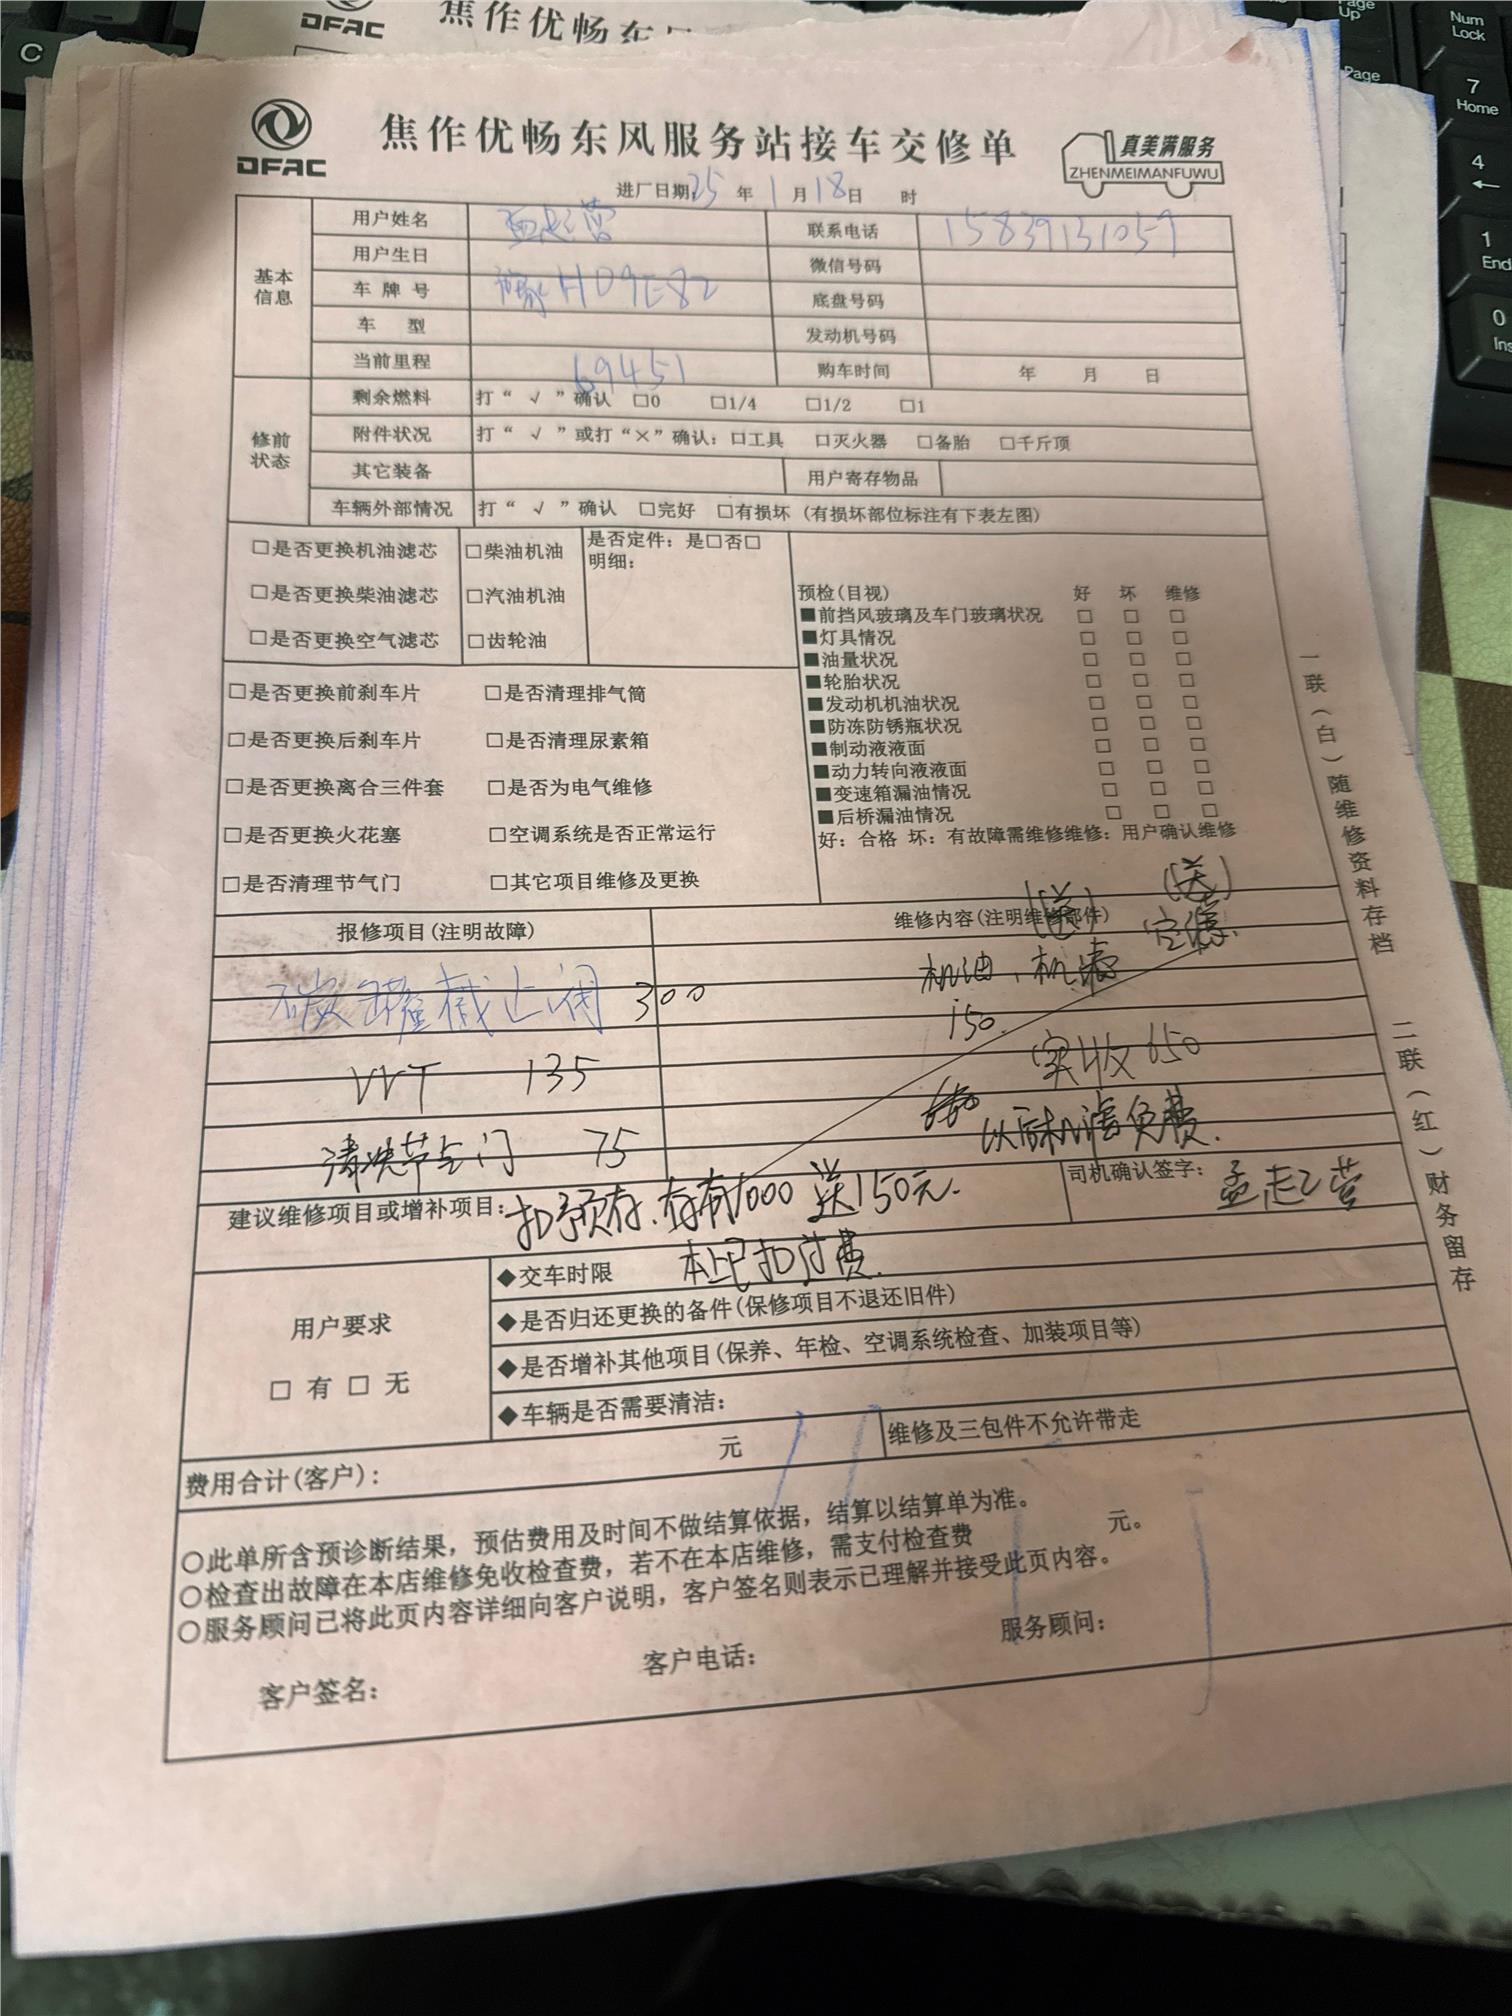 DFAC
焦作优畅东
DFAC
焦作优畅东风服务站接车交修单
真美满服务
ZHENMEIMANFUWU
进厂日期:25 年 1 月 18日 时
基本信息
用户姓名 孟起营 联系电话 15839131059
用户生日 微信号码
车牌号 豫H09E82 底盘号码
车 型 发动机号码
当前里程 69451 购车时间 年 月 日
修前状态
剩余燃料 打“√”确认 □0 □1/4 □1/2 □1
附件状况 打“√”或打“×”确认: □工具 □灭火器 □备胎 □千斤顶
其它装备 用户寄存物品
车辆外部情况 打“√”确认 □完好 □有损坏 (有损坏部位标注有下表左图)
□是否更换机油滤芯 □柴油机油 是否定件: 是□否□
明细:
□是否更换柴油滤芯 □汽油机油
□是否更换空气滤芯 □齿轮油
□是否更换前刹车片 □是否清理排气筒
□是否更换后刹车片 □是否清理尿素箱
□是否更换离合三件套 □是否为电气维修
□是否更换火花塞 □空调系统是否正常运行
□是否清理节气门 □其它项目维修及更换
预检(目视) 好 坏 维修
■前挡风玻璃及车门玻璃状况 □ □ □
■灯具情况 □ □ □
■油量状况 □ □ □
■轮胎状况 □ □ □
■发动机机油状况 □ □ □
■防冻防锈瓶状况 □ □ □
■制动液液面 □ □ □
■动力转向液液面 □ □ □
■变速箱漏油情况 □ □ □
■后桥漏油情况 □ □ □
好: 合格 坏: 有故障需维修维修: 用户确认维修
报修项目(注明故障) 维修内容(注明维修部件)
(送) (送)
碳罐截止阀 300 机油、机滤 空滤.
150.
VVT 135 实收650
清洗节气门 75 以后机滤免费.
建议维修项目或增补项目: 扣预存.存有1000 送150元. 司机确认签字: 孟起营
用户要求
□ 有 □ 无
◆交车时限 扣付费.
◆是否归还更换的备件(保修项目不退还旧件)
◆是否增补其他项目(保养、年检、空调系统检查、加装项目等)
◆车辆是否需要清洁:
费用合计(客户): 元 维修及三包件不允许带走
○此单所含预诊断结果, 预估费用及时间不做结算依据, 结算以结算单为准。
○检查出故障在本店维修免收检查费, 若不在本店维修, 需支付检查费 元。
○服务顾问已将此页内容详细向客户说明, 客户签名则表示已理解并接受此页内容。
客户签名: 客户电话: 服务顾问:
一联(白)随维修资料存档 二联(红)财务留存
C
Page Up
Num Lock
Page
7 Home
4 ←
1 End
0 Ins